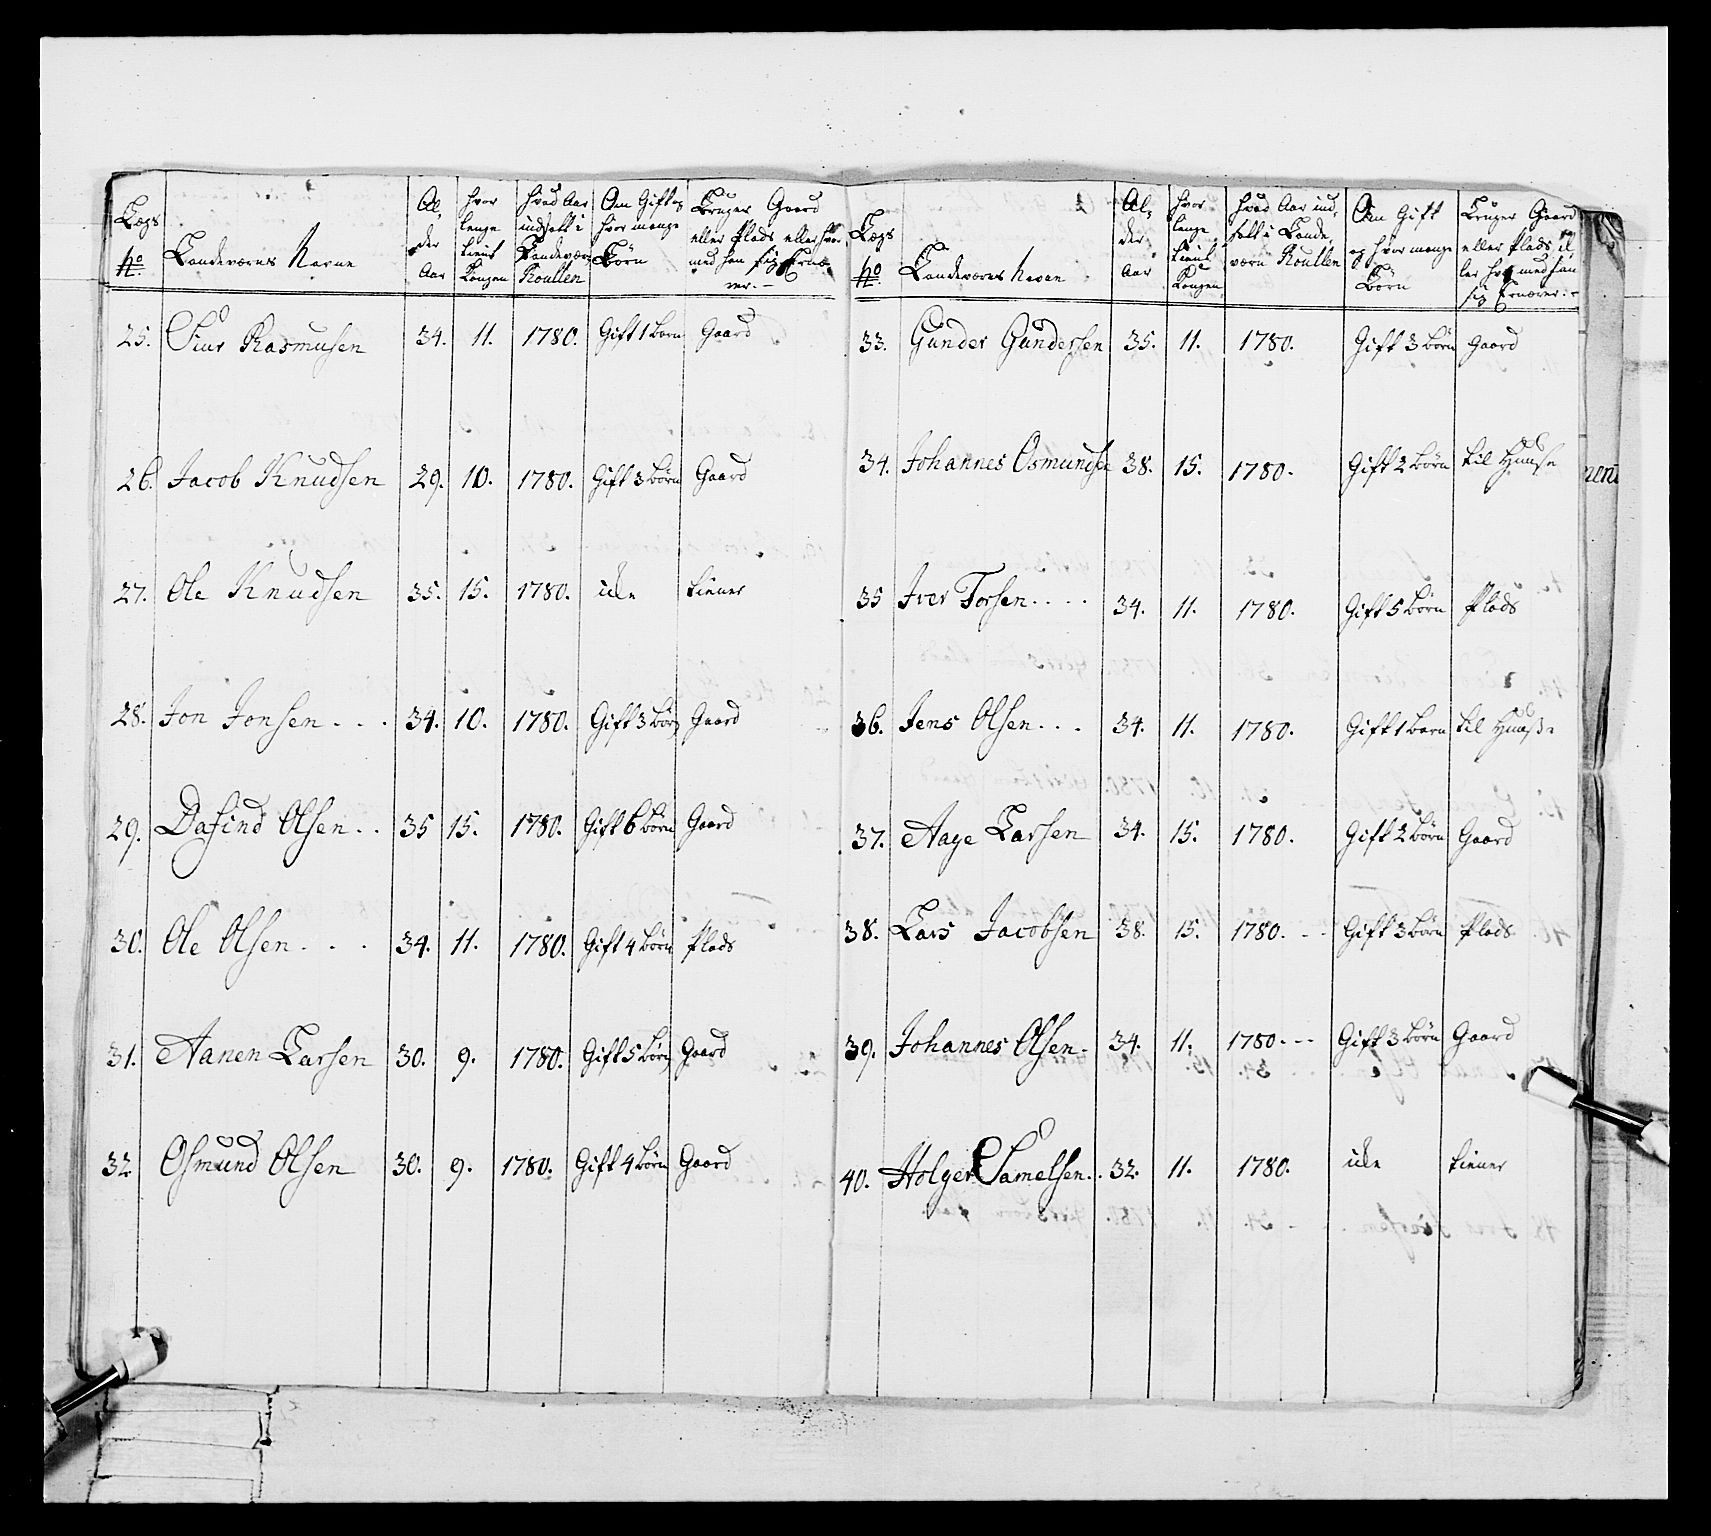 Lægs No | Landeværns Navne | Al„der Aar | hvor lenge tient Kongen | hvad Aar indsatt i Landeværn Roullen | Om Gift og hvor mange Børn | Bruger Gaard eller Plads eller hvormed han sig Ernærer.-
25. Siur Rasmusen 34. 11. 1780. Gift 1 barn Gaard
26. Jacob Knudsen 29. 10. 1780. Gift 3 børn Gaard
27. Ole Knudsen 35. 15. 1780. icke tiener
28. Jon Jonsen . . . 34. 10. 1780. Gift 3 børn Gaard
29. Dafind Olsen . . 35 15. 1780. Gift 6 børn Gaard
30. Ole Olsen . . . 34. 11. 1780. Gift 4 børn Plads
31. Aanen Larsen 30. 9. 1780. Gift 5 børn Gaard
32 Osmund Olsen 30. 9. 1780. Gift 4 børn Gaard
Lægs No | Landeværns Navne | Al„der Aar | hvor lenge tient Kongen | hvad Aar indsatt i Landeværn Roullen | Om Gift og hvor mange Børn | Bruger Gaard eller Plads eller hvormed han sig Ernærer.-
33. Gunder Gundersen 35. 11. 1780. Gift 3 børn Gaard
34. Johannes Osmundse 38. 15. 1780. Gift 2 børn til Huuse
35 Iver Torsen . . . . 34. 11. 1780. Gift 5 børn Plads
36. Jens Olsen . . . 34. 11. 1780. Gift 1 barn til Huuse
37. Aage Larsen 34. 15. 1780. Gift 2 børn Gaard
38. Lars Jacobsen 38. 15. 1780. - - Gift 3 børn Plads
39. Johannes Olsen. 34. 11. 1780. - - Gift 3 børn Gaard
40. Holger Samelsen. . 32. 11. 1780. icke tiener